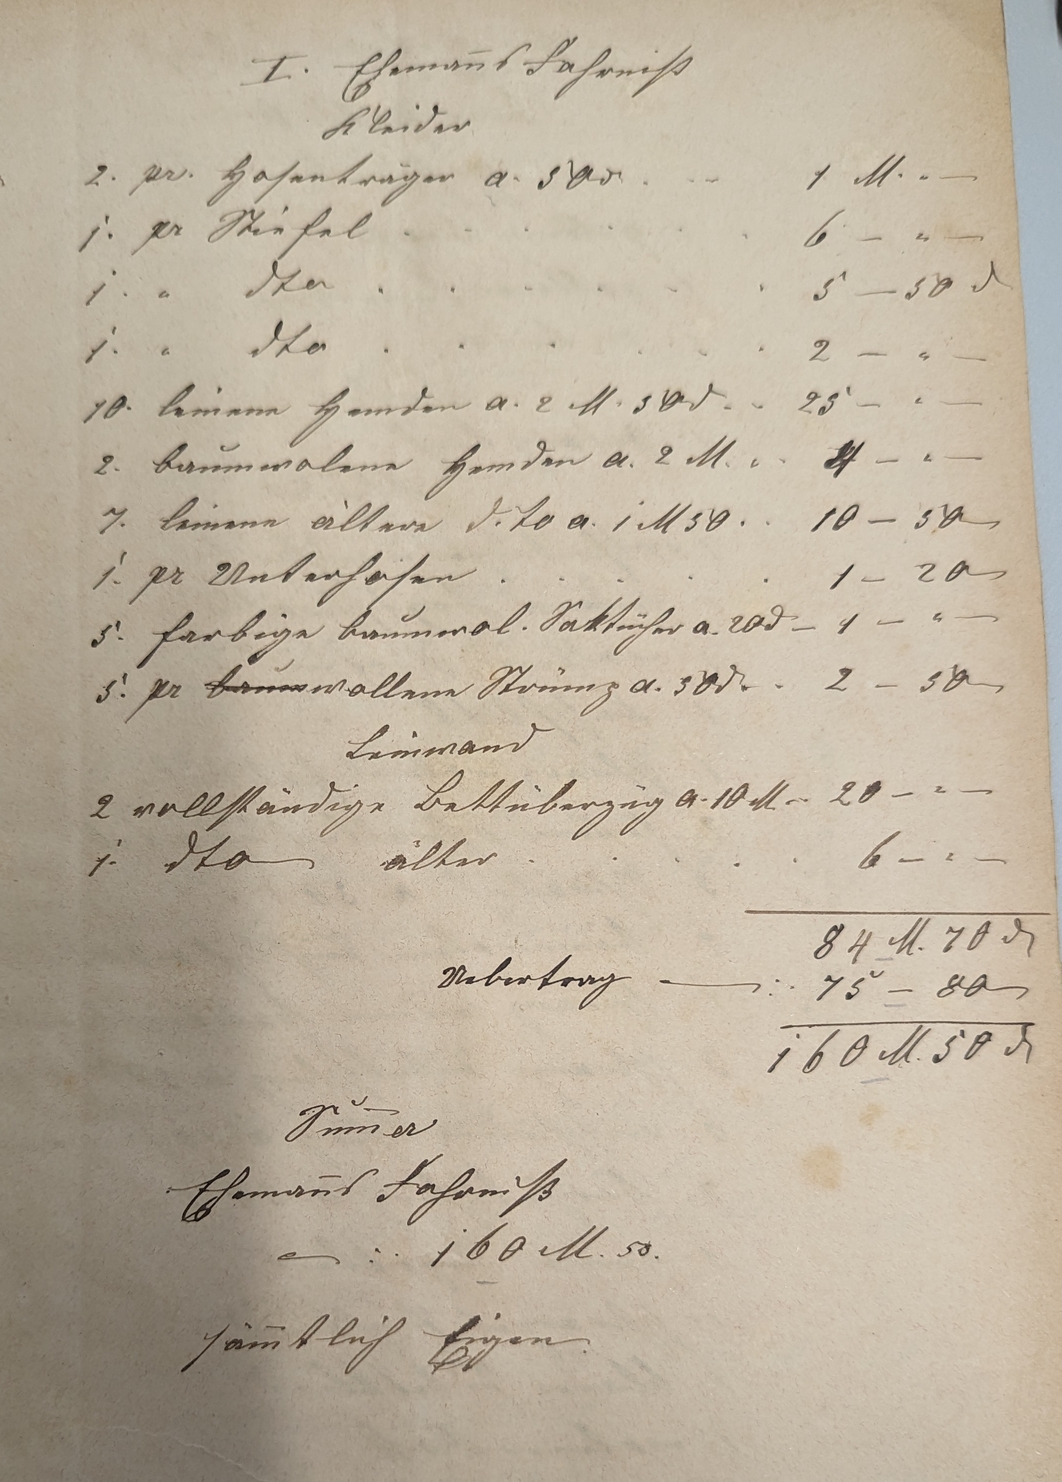 I. Ehemanns Fahrniß
Kleider
2. pr. Hosenträger a. 50 d. . . 1 M. „ —
1. pr Stiefel . . . . . . 6 — „ —
1. „ dto . . . . . . 5 — 50 d
1. „ dto . . . . . . 2 — „ —
10. leinene Hemden a. 2 M. 50 d. . 25 — „ —
2. baumwolene Hemden a. 2 M. . . 4 — „ —
7. leinene ältere d.to a. 1 M 50 . . 10 — 50
1. pr Unterhosen . . . . . 1 — 20
5. farbige baumwol. Saktücher a. 20 d — 1 — „ —
5. pr baumwollene Strümp a. 50 d. . 2 — 50
Leinwand
2 vollständige Bettüberzüg a. 10 M — 20 — „ —
1. dto älter . . . . . 6 — „ —
84 M. 70 d
Uebertrag — : . 75 — 80
160 M. 50 d
Summa
Ehemanns Fahrniß
— : . 160 M. 50.
sämmtlich Eigen